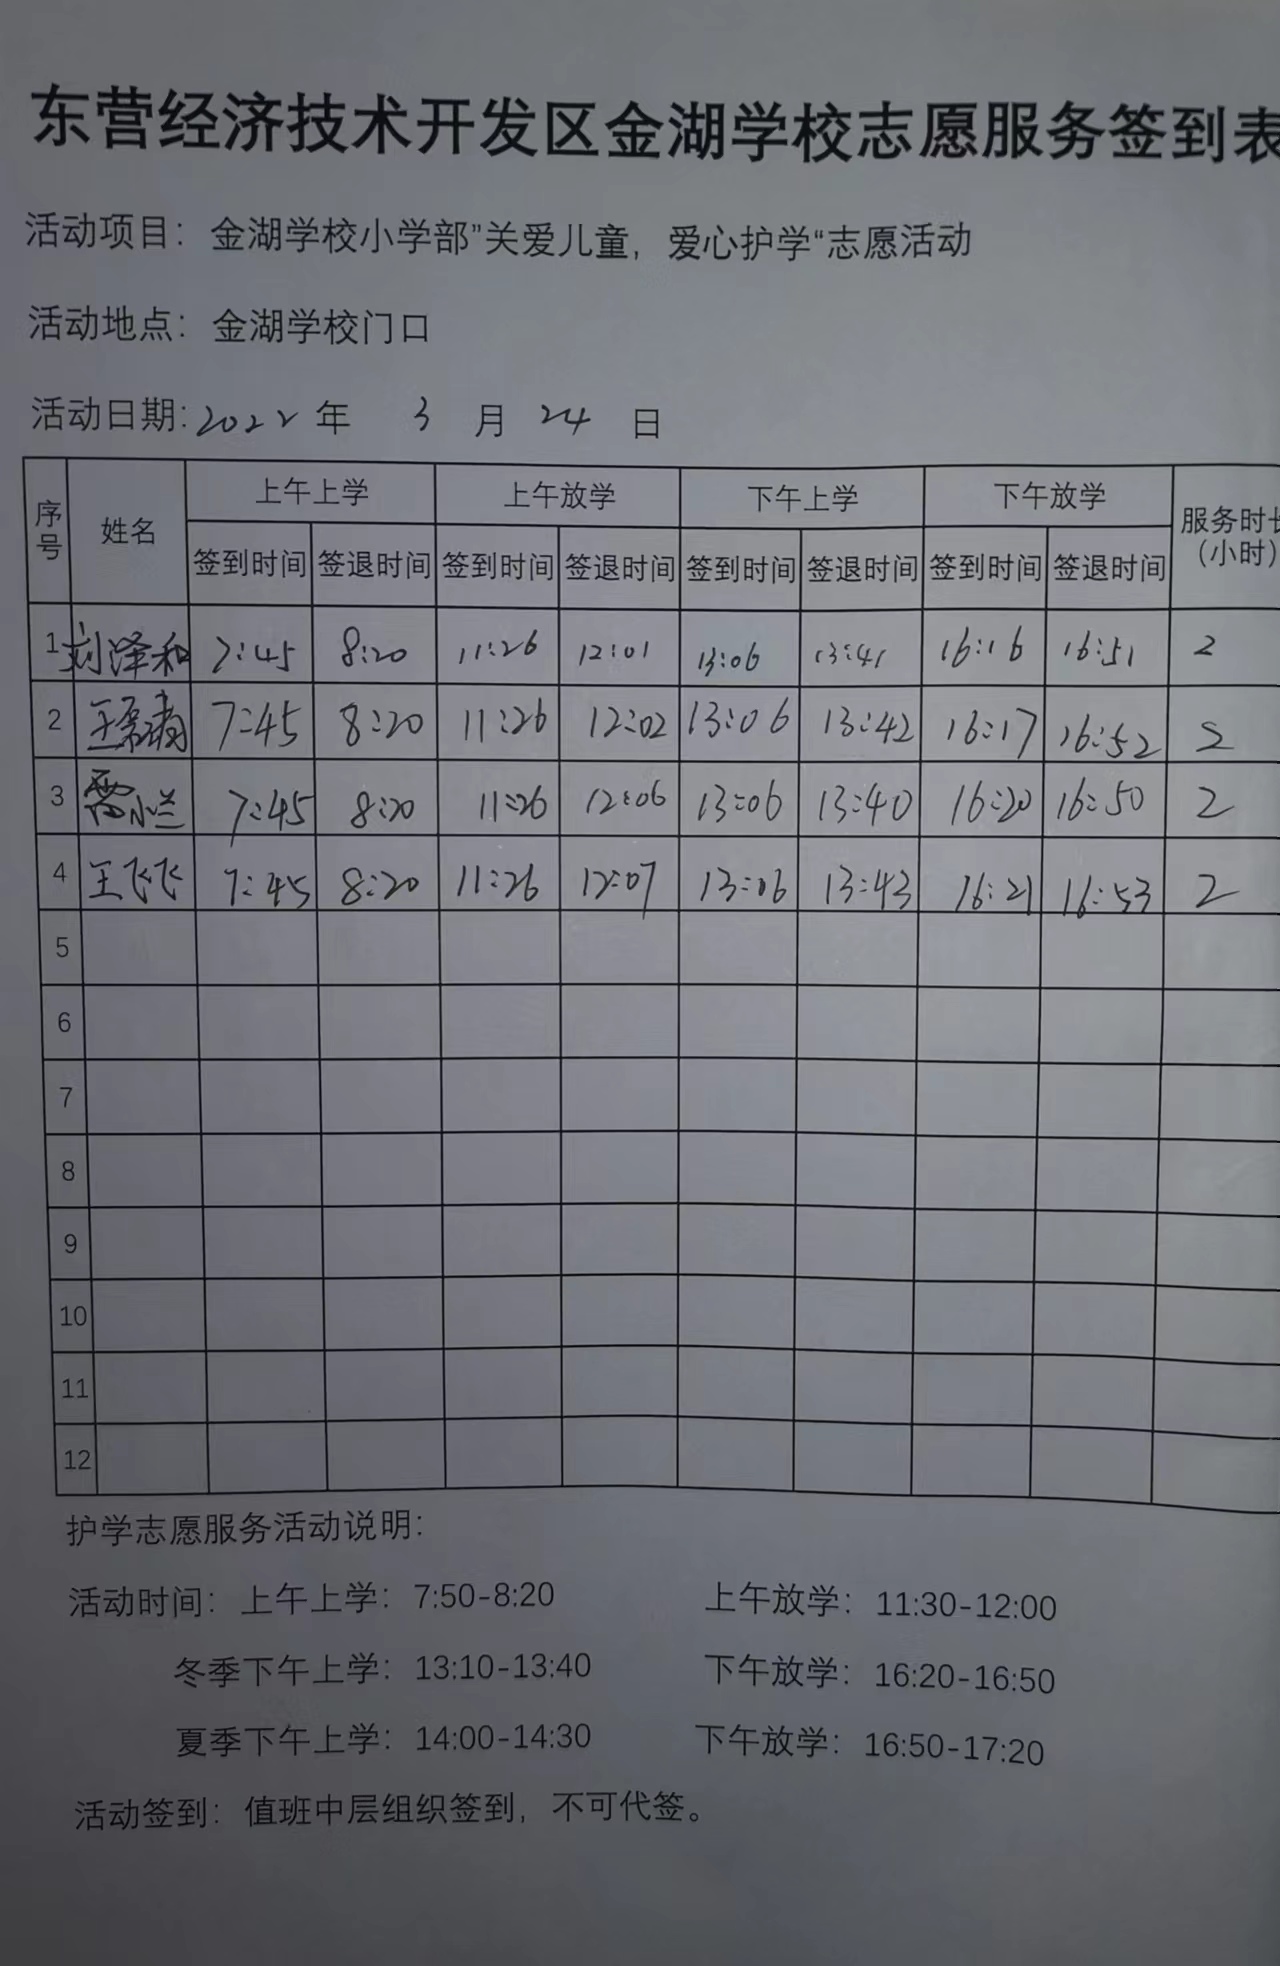 东营经济技术开发区金湖学校志愿服务签到表
活动项目：金湖学校小学部”关爱儿童，爱心护学“志愿活动
活动地点：金湖学校门口
活动日期: 2022 年 3 月 24 日
序号 姓名 上午上学 上午放学 下午上学 下午放学 服务时长（小时）
签到时间 签退时间 签到时间 签退时间 签到时间 签退时间 签到时间 签退时间
1 刘泽和 7:45 8:20 11:26 12:01 13:06 13:41 16:16 16:51 2
2 王 7:45 8:20 11:26 12:02 13:06 13:42 16:17 16:52 2
3 小兰 7:45 8:20 11:26 12:06 13:06 13:40 16:20 16:50 2
4 王飞飞 7:45 8:20 11:26 12:07 13:06 13:43 16:21 16:53 2
5
6
7
8
9
10
11
12
护学志愿服务活动说明：
活动时间：上午上学：7:50-8:20 上午放学：11:30-12:00
冬季下午上学：13:10-13:40 下午放学：16:20-16:50
夏季下午上学：14:00-14:30 下午放学：16:50-17:20
活动签到：值班中层组织签到，不可代签。